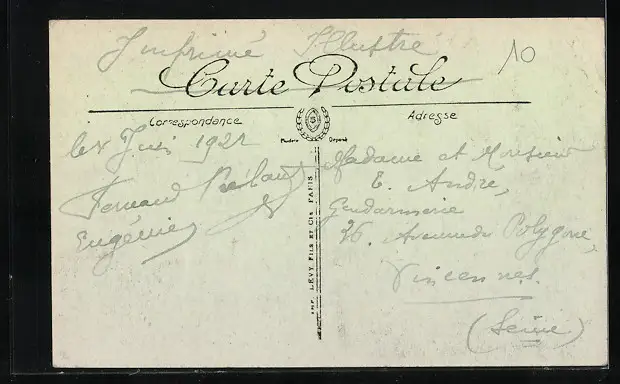 Imprimé Illustré
10
Carte Postale
Correspondance
Adresse
Modèle Déposé
le Juin 1921
Fernand
Eugénie
IMP. LÉVY FILS ET CIE PARIS
Madame et Monsieur
E. André,
Gendarmerie
26. Avenue du Polygone,
Vincennes.
(Seine)